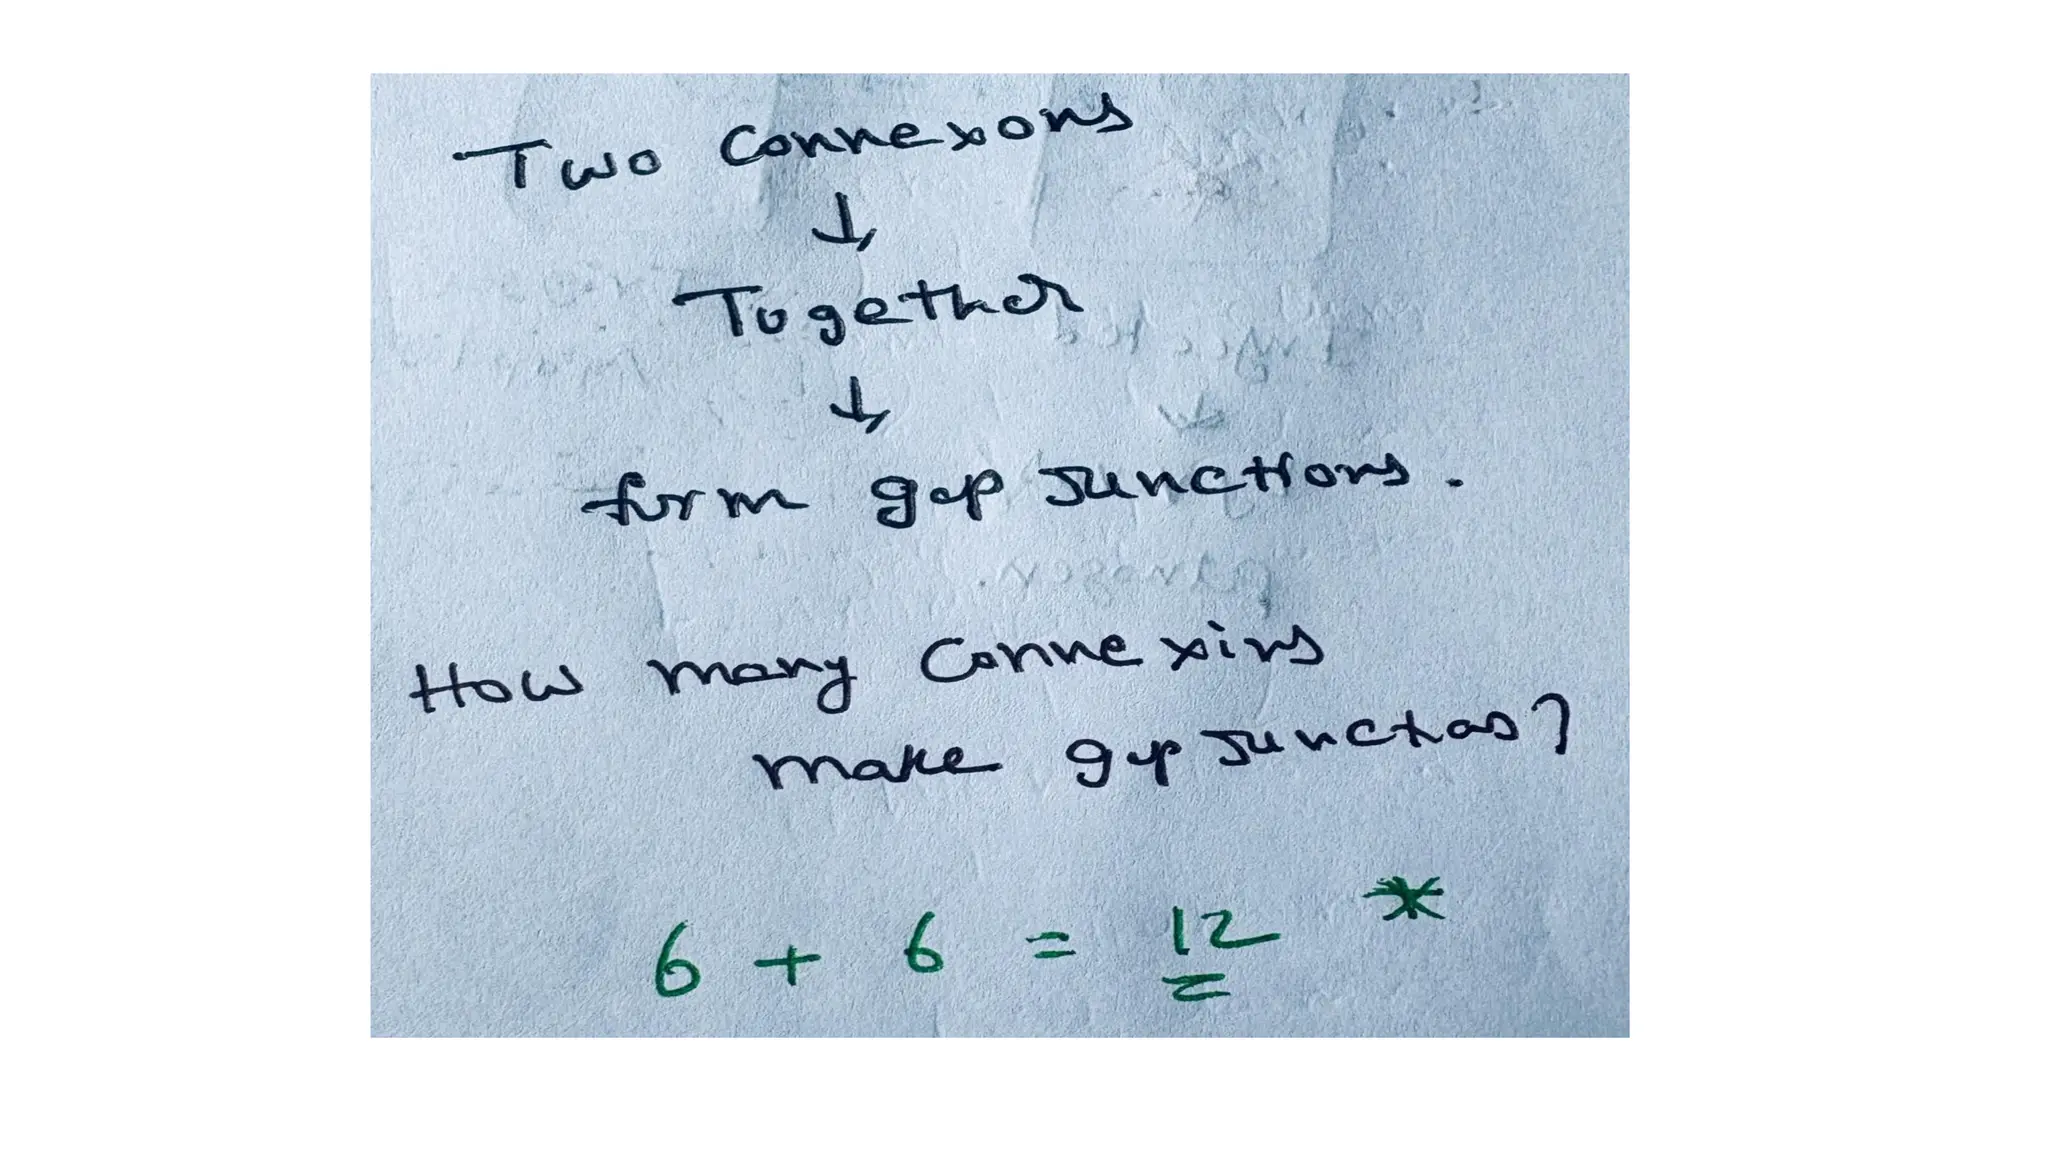 Two Connexons
↓
Together
↓
form gap Junctions.
How many Connexins
make gap Junctions?
6 + 6 = 12 *